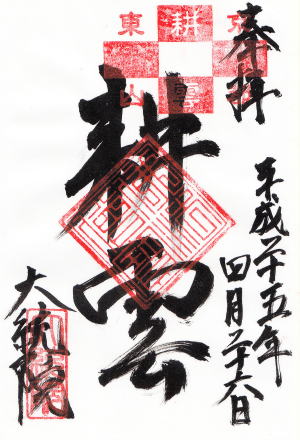 奉拝
平成二十五年
四月二十六日
耕雲
大統院
東 耕
山 雲